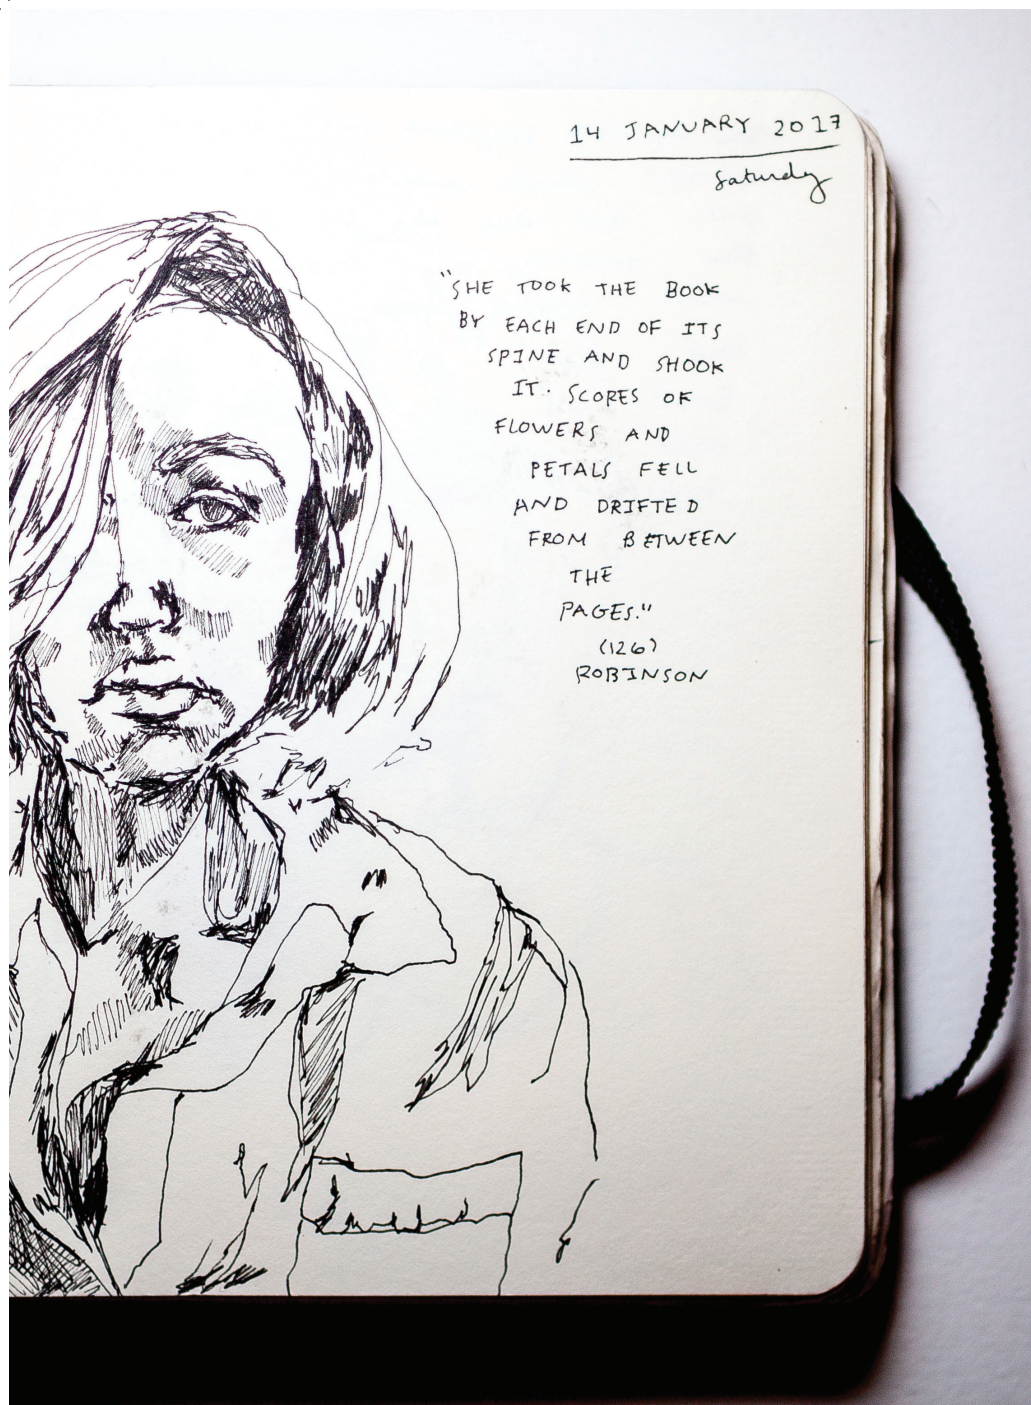 14 JANUARY 2017
Saturday
"SHE TOOK THE BOOK
BY EACH END OF ITS
SPINE AND SHOOK
IT. SCORES OF
FLOWERS AND
PETALS FELL
AND DRIFTED
FROM BETWEEN
THE
PAGES."
(126)
ROBINSON